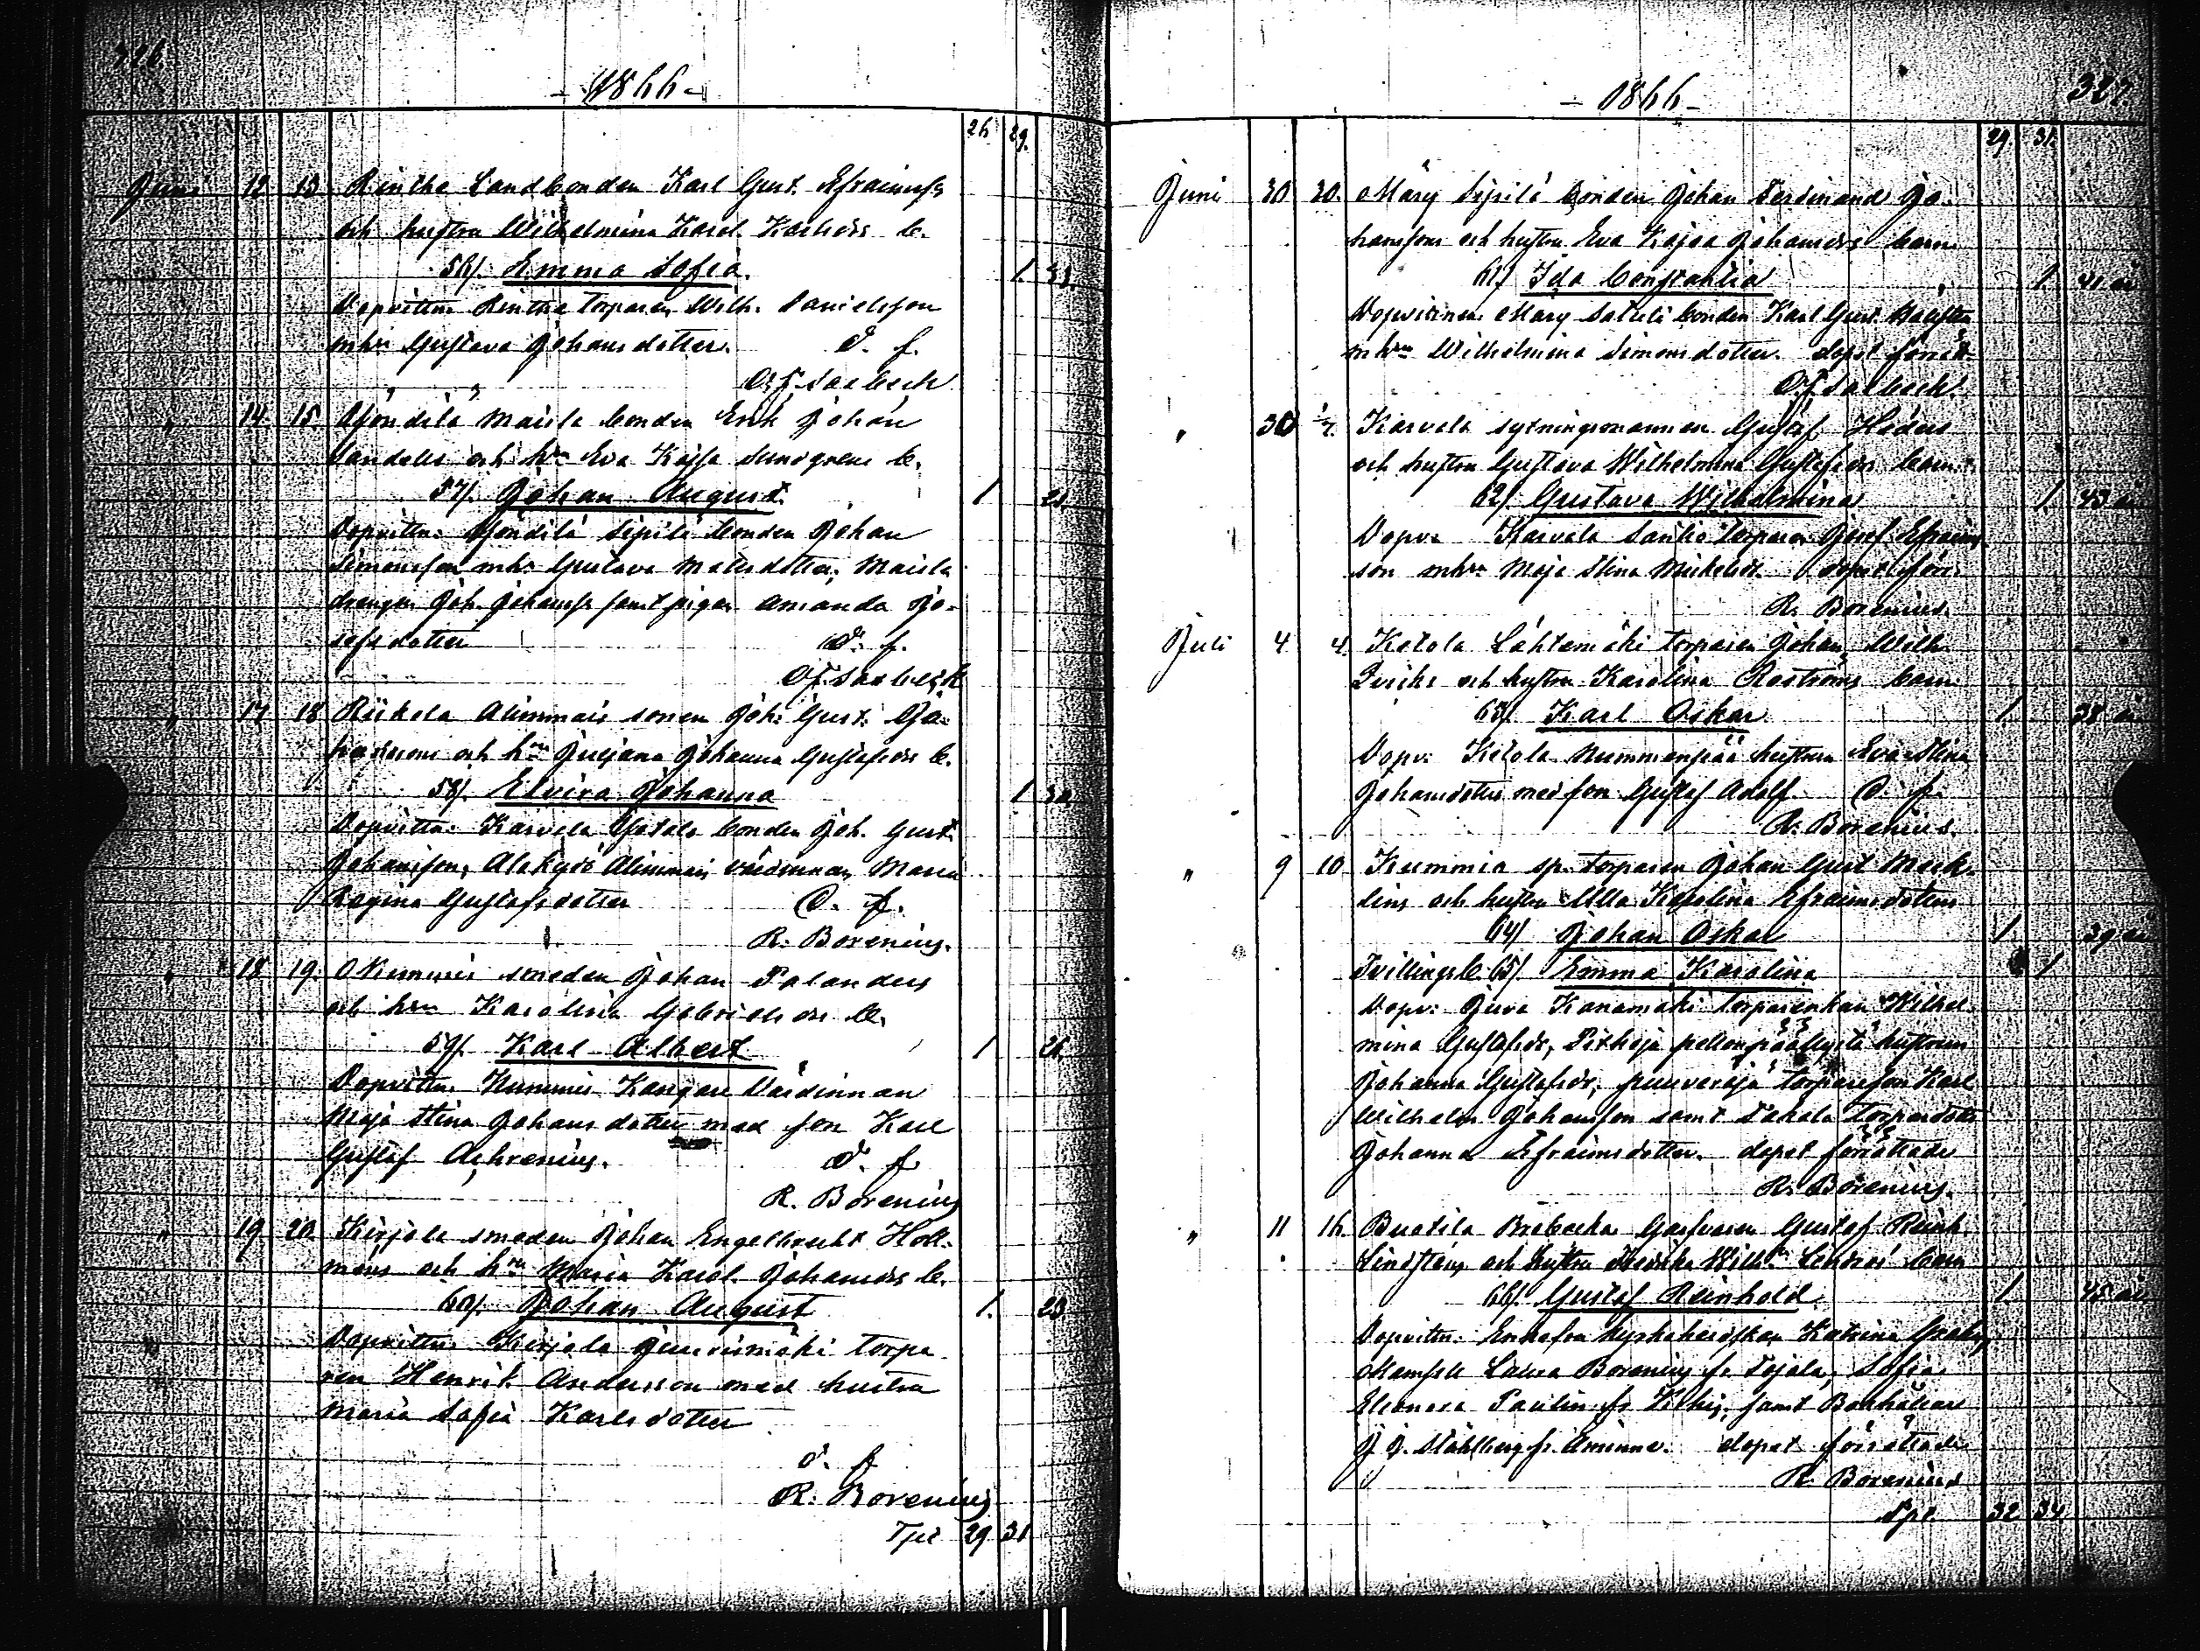 326
- 1866 -
26. 29.
Juni 12 13 Rinthe Landbonden Karl Gust. Efraimss
och hustru Wilhelmina Karol. Karlsdrs b.
56/. Emma Sofia. 1. 33
Dopvittn. Rintha torparen Wilh. Danielsson
mhu Gustava Johansdotter. D. f.
O. F. Saxbeck
" 14. 15. Sipilä bonden Erik Johan
och hru Eva Kajsa Sundgrens b.
57/. Johan August 1 23
Dopvittn. Sipilä bonden Johan
Simonsson mhu Gustava Matsdotter, Maisla
drengen Joh. Johanss samt pigan Amanda Jo-
sefsdotter D. f.
O. F. Saxbeck
" 17 18 Riikola Alimmais sonen Joh. Gust. Jo-
hanssons och hru Juljana Johanna Gustafsdrs b.
58/. Elvira Johanna 1 30
Dopvittn. Karvela Yotala bonden Joh. Gust.
Johansson, Alakylä Alimmais värdinnan Maria
Regina Gustafsdotter D. f.
R. Borenius.
" 18 19. Kummis smeden Johan Palanders
och hru Karolina Gabrielsdrs b.
59/. Karl Albert 1 26
Dopvittn. Kummis Kangare värdinnan
Maja Stina Johansdotter med son Karl
Gustaf Achrenius. D. f.
R. Borenius
" 19 20. Kirjola smeden Johan Engelbrecht Holl-
méns och hru Maria Karol. Johansdrs b.
60/. Johan August 1. 23
Dopvittn. Kirjola torpa-
ren Henrik Andersson med hustru
Maria Sofia Karlsdotter
D. f.
R. Borenius
Tpt 29 31
- 1866 - 327.
29 31.
Juni 30 30. Mäsy Sipilä bonden Johan Ferdinand Jo-
hanssons och hustru Eva Kajsa Johansdrs barn
61/ Ida Constantia 1 41 år
Dopvittnen Mäsy Sattili bonden Karl Gust.
mhru Wilhelmina Simonsdotter. dopet förrätt
O. F. Saxbeck.
" 30 1/7. Karvela sytningsmannen Gustaf
och hustru Gustava Wilhelmina Gustafsdrs barn
62/. Gustava Wilhelmina 1. 43 år
Dopv. Karvela Santio torparen Josef Efraims-
son mhru Maja Stina Mickelsdr. dopet förr.
R. Borenius.
Juli 4 4. Ketola Lähtemäki torparen Johan Wilh.
och hustru Karolina barn
63/. Karl Oskar 1. 38 år
Dopv. Ketola Nummenpää hustrun Eva Stina
Johansdotter med son Gustaf Adolf. D. f.
R. Borenius.
" 9 10 Kummia sp. torparen Johan Gust Meck-
lins och hustru Ulla Karolina Efraimsdotters
64/ Johan Oskar 1. 39 år
Tvillingsb. 65/. Emma Karolina 1
Dopv. Juva Kanamäki torparenkan Wilhel-
mina Gustafsdr, hustrun
Johanna Gustafsdr, torpareson Karl
Wilhelm Johansson samt Takala torparedotter
Johanna Efraimsdotter. dopet förrättade
R. Borenius.
" 11 16. Buatila Garfvaren Gustaf Reinh.
Lindstens och hustru Hedvika Wilh. barn
66/. Gustaf Reinhold. 1. 45 år
Dopvittn. Enkefru Katrina
Mamsell Laura Borenius fr. Tojala, Sofia
Eleonora Paulin fr. samt Bokhållare
J. J. Ståhlberg fr. Åminne. dopet förrättade
R. Borenius
Tpt 32 34